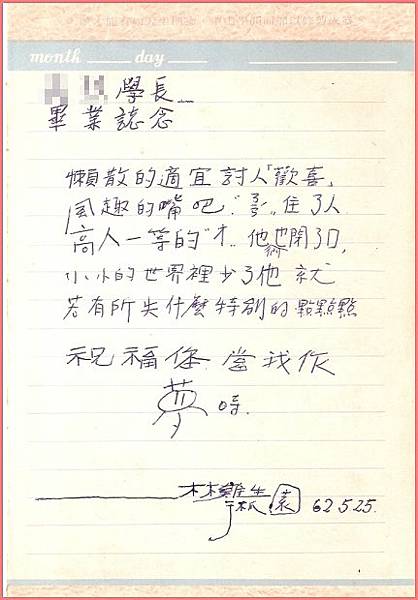 month day
學長
畢業誌念
懶散的適宜討人「歡喜」
風趣的嘴吧 住了人
高人一等的"才" 他也閉了口,
小小的世界裡少了他 就
若有所失什麼特別的點點點
祝福你 當我作
夢 時.
62.5.25.